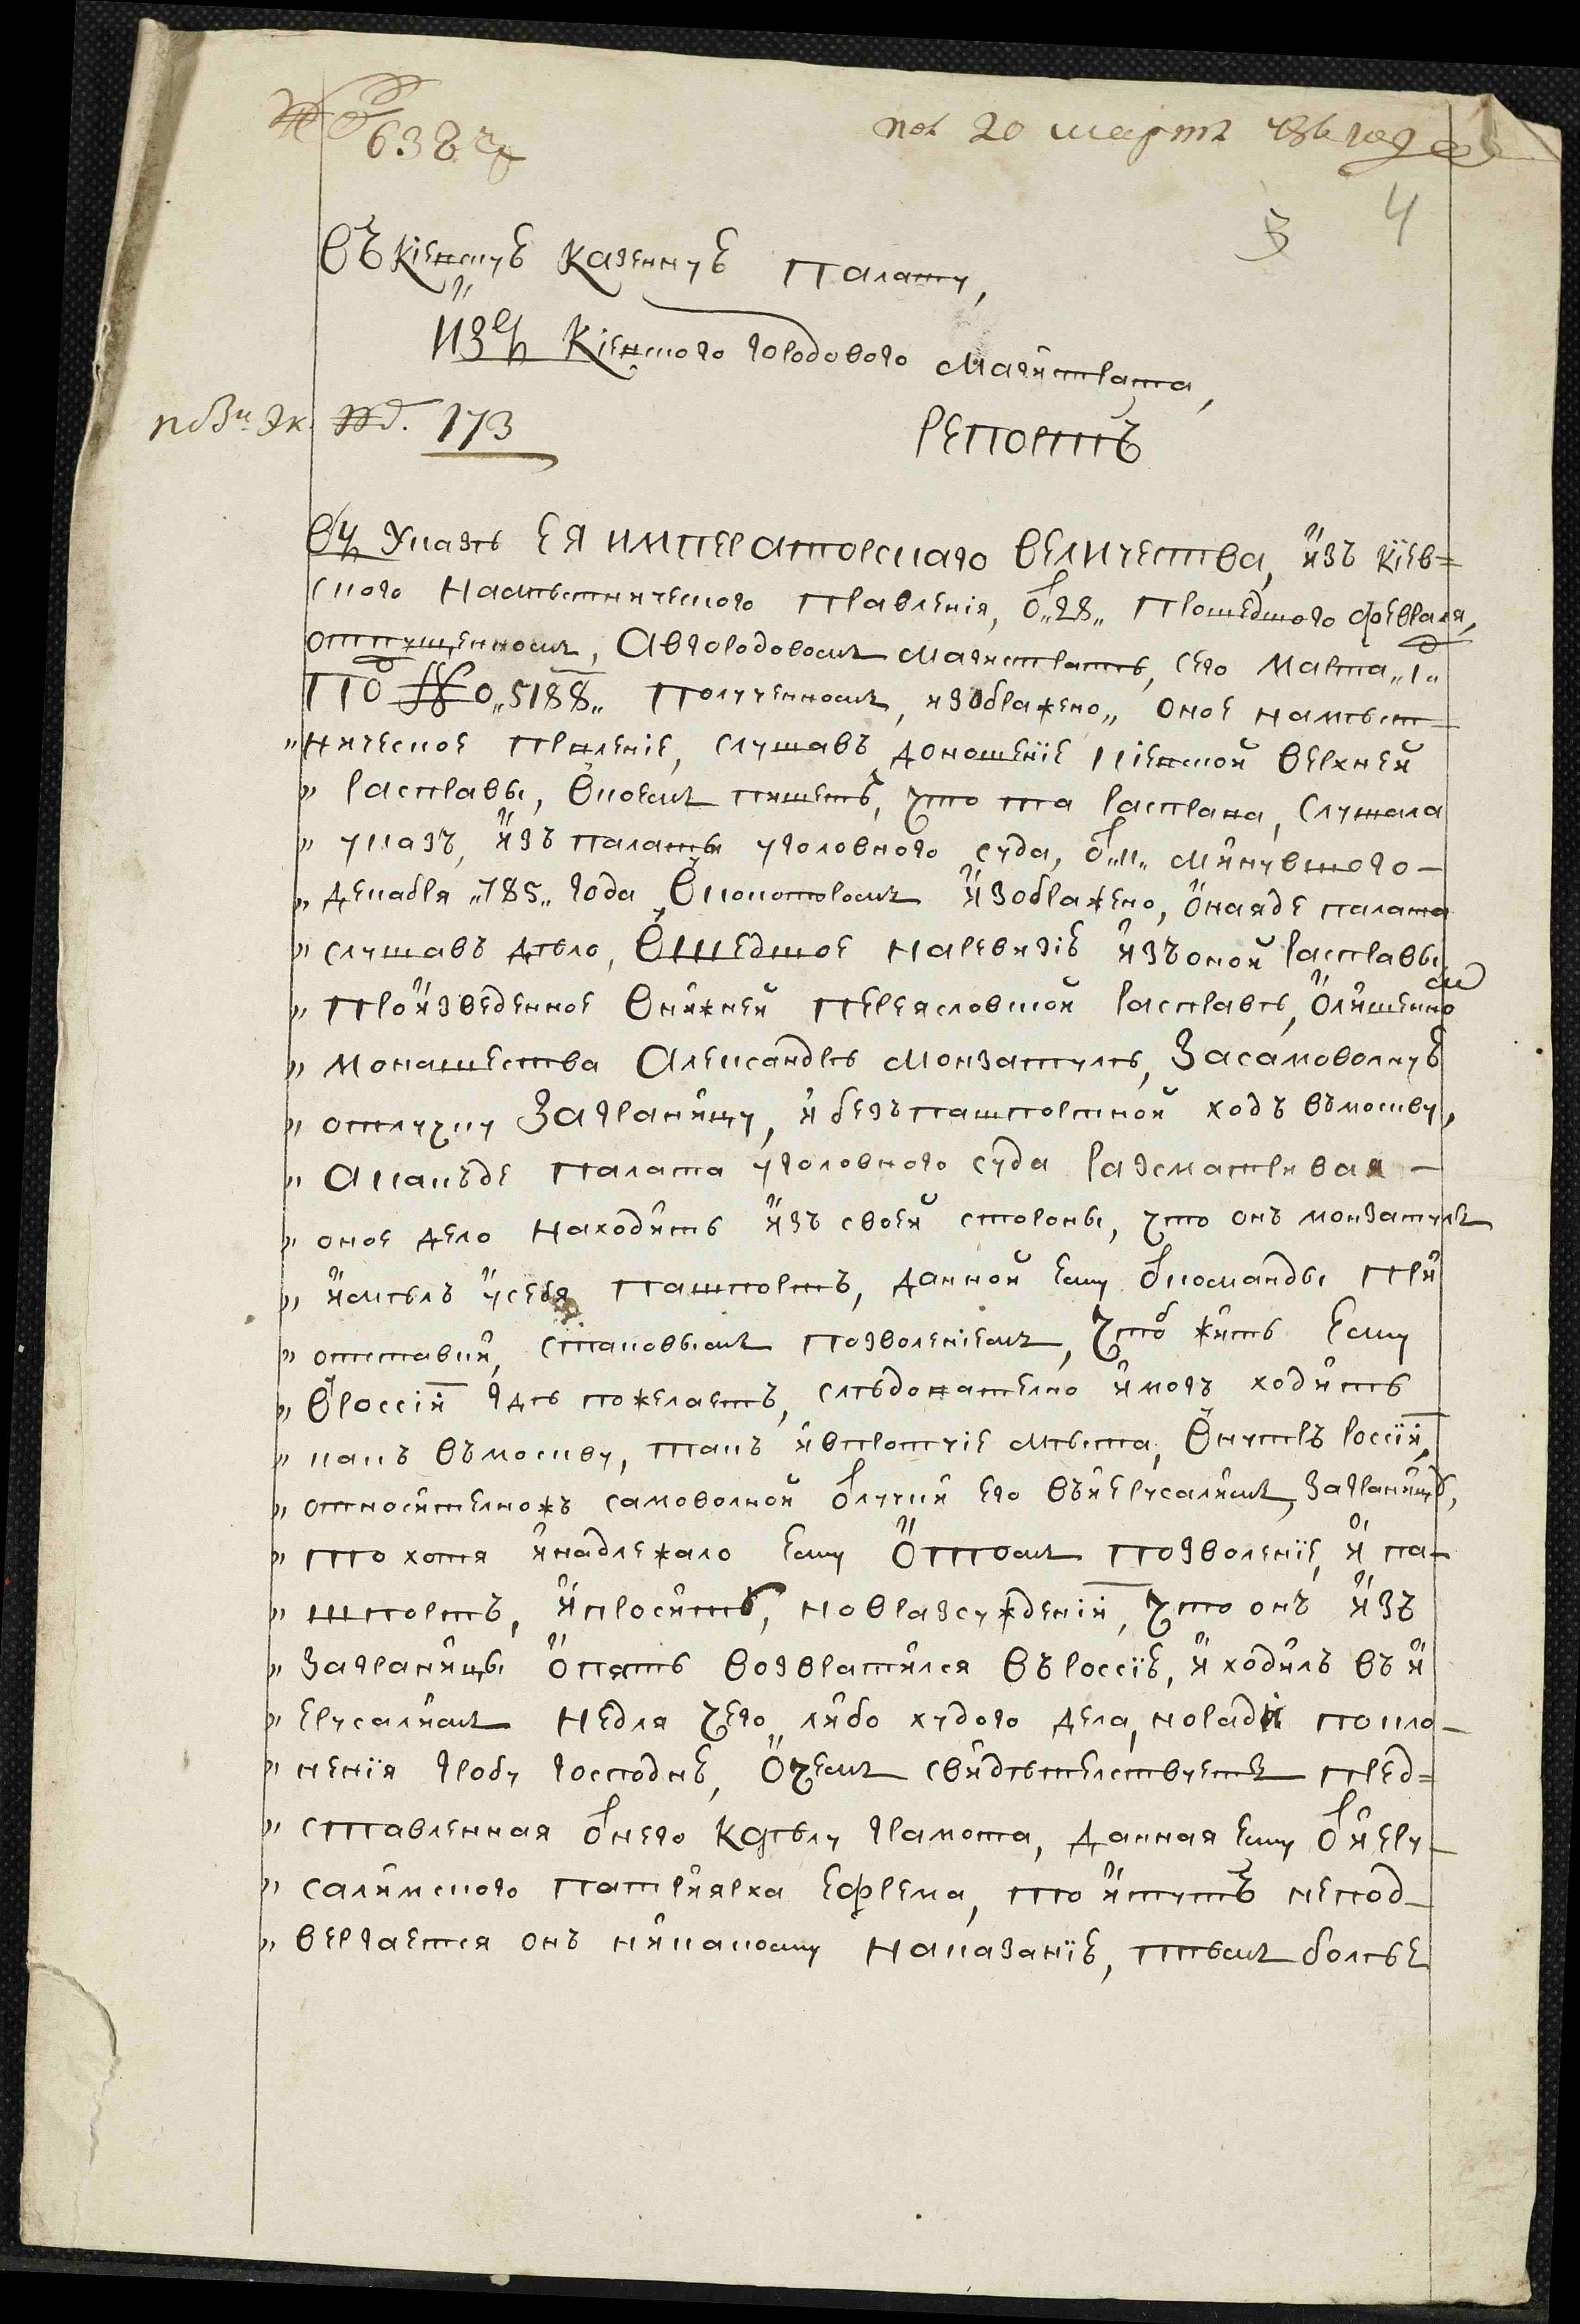 № 6387
пол 20 марта 786 года
3 4
Въ Кіевскую Казенную Палату,
Изъ Кіевского городового магистрата,
по 3й эк. №. 173
Репортъ
Въ Указѣ ЕЯ ИМПЕРАТОРСКАГО ВЕЛИЧЕСТВА, изъ Кіев=
ского Намѣстнического Правленія, от „28„ Прошедшого февраля,
отпущенномъ, А вгородовомъ магистратѣ, сего Марта „1„
ПОД №о „5188„ Полученномъ, изображено „ оное намѣст-
„ническое правленіе, слушавъ доношеніе Кіевской верхней
„ Расправы, вкоемъ пишетъ, что та Расправа, слушала
„ указъ, изъ палаты уголовного суда, от „11„ минувшого-
„ декабря „785„ года вкокоторомъ изображено, онаяде палата
„ слушавъ дѣло, вшедшое наревизію изъоной расправы
„ произведенное внижней переясловской расправѣ, олишенном
„ монашества Александрѣ Монзатулѣ, За самоволную
„ отлучку Заграницу, и безъпашпортной ходъ въмоскву,
„ А какъде палата уголовного суда Разсматривая -
„ оное дело находитъ изъ своей стороны, что онъ монзатулъ
„ имѣлъ усебя пашпортъ, данной ему от команды при
„ отставки, стаковымъ позволеніемъ, чтоб жить ему
„ вроссіи гдѣ пожелаетъ, слѣдователно имогъ ходить
„ какъ въмоскву, такъ ивпротчіе мѣста, внутръ россіи,
„ относителножъ самоволной от лучки его въиерусалимъ, Заграницу,
„ то хотя инадлежало ему отомъ позволеніе, и па-
„ шпортъ, ипросить, но вразсужденіи, что онъ изъ
„ Заграницы опять возвратился въроссію, и ходилъ въ и
„ ерусалимъ недля чего либо худого дела, норади покло-
„ ненія гробу господню, очемъ свидѣтелствуетъ пред=
„ ставленная от него Кдѣлу грамота, данная ему от иеру-
„ салимского патріярха Ефрема, то итутъ непод-
„ вергается онъ никакому наказанію, тѣмъ болѣе